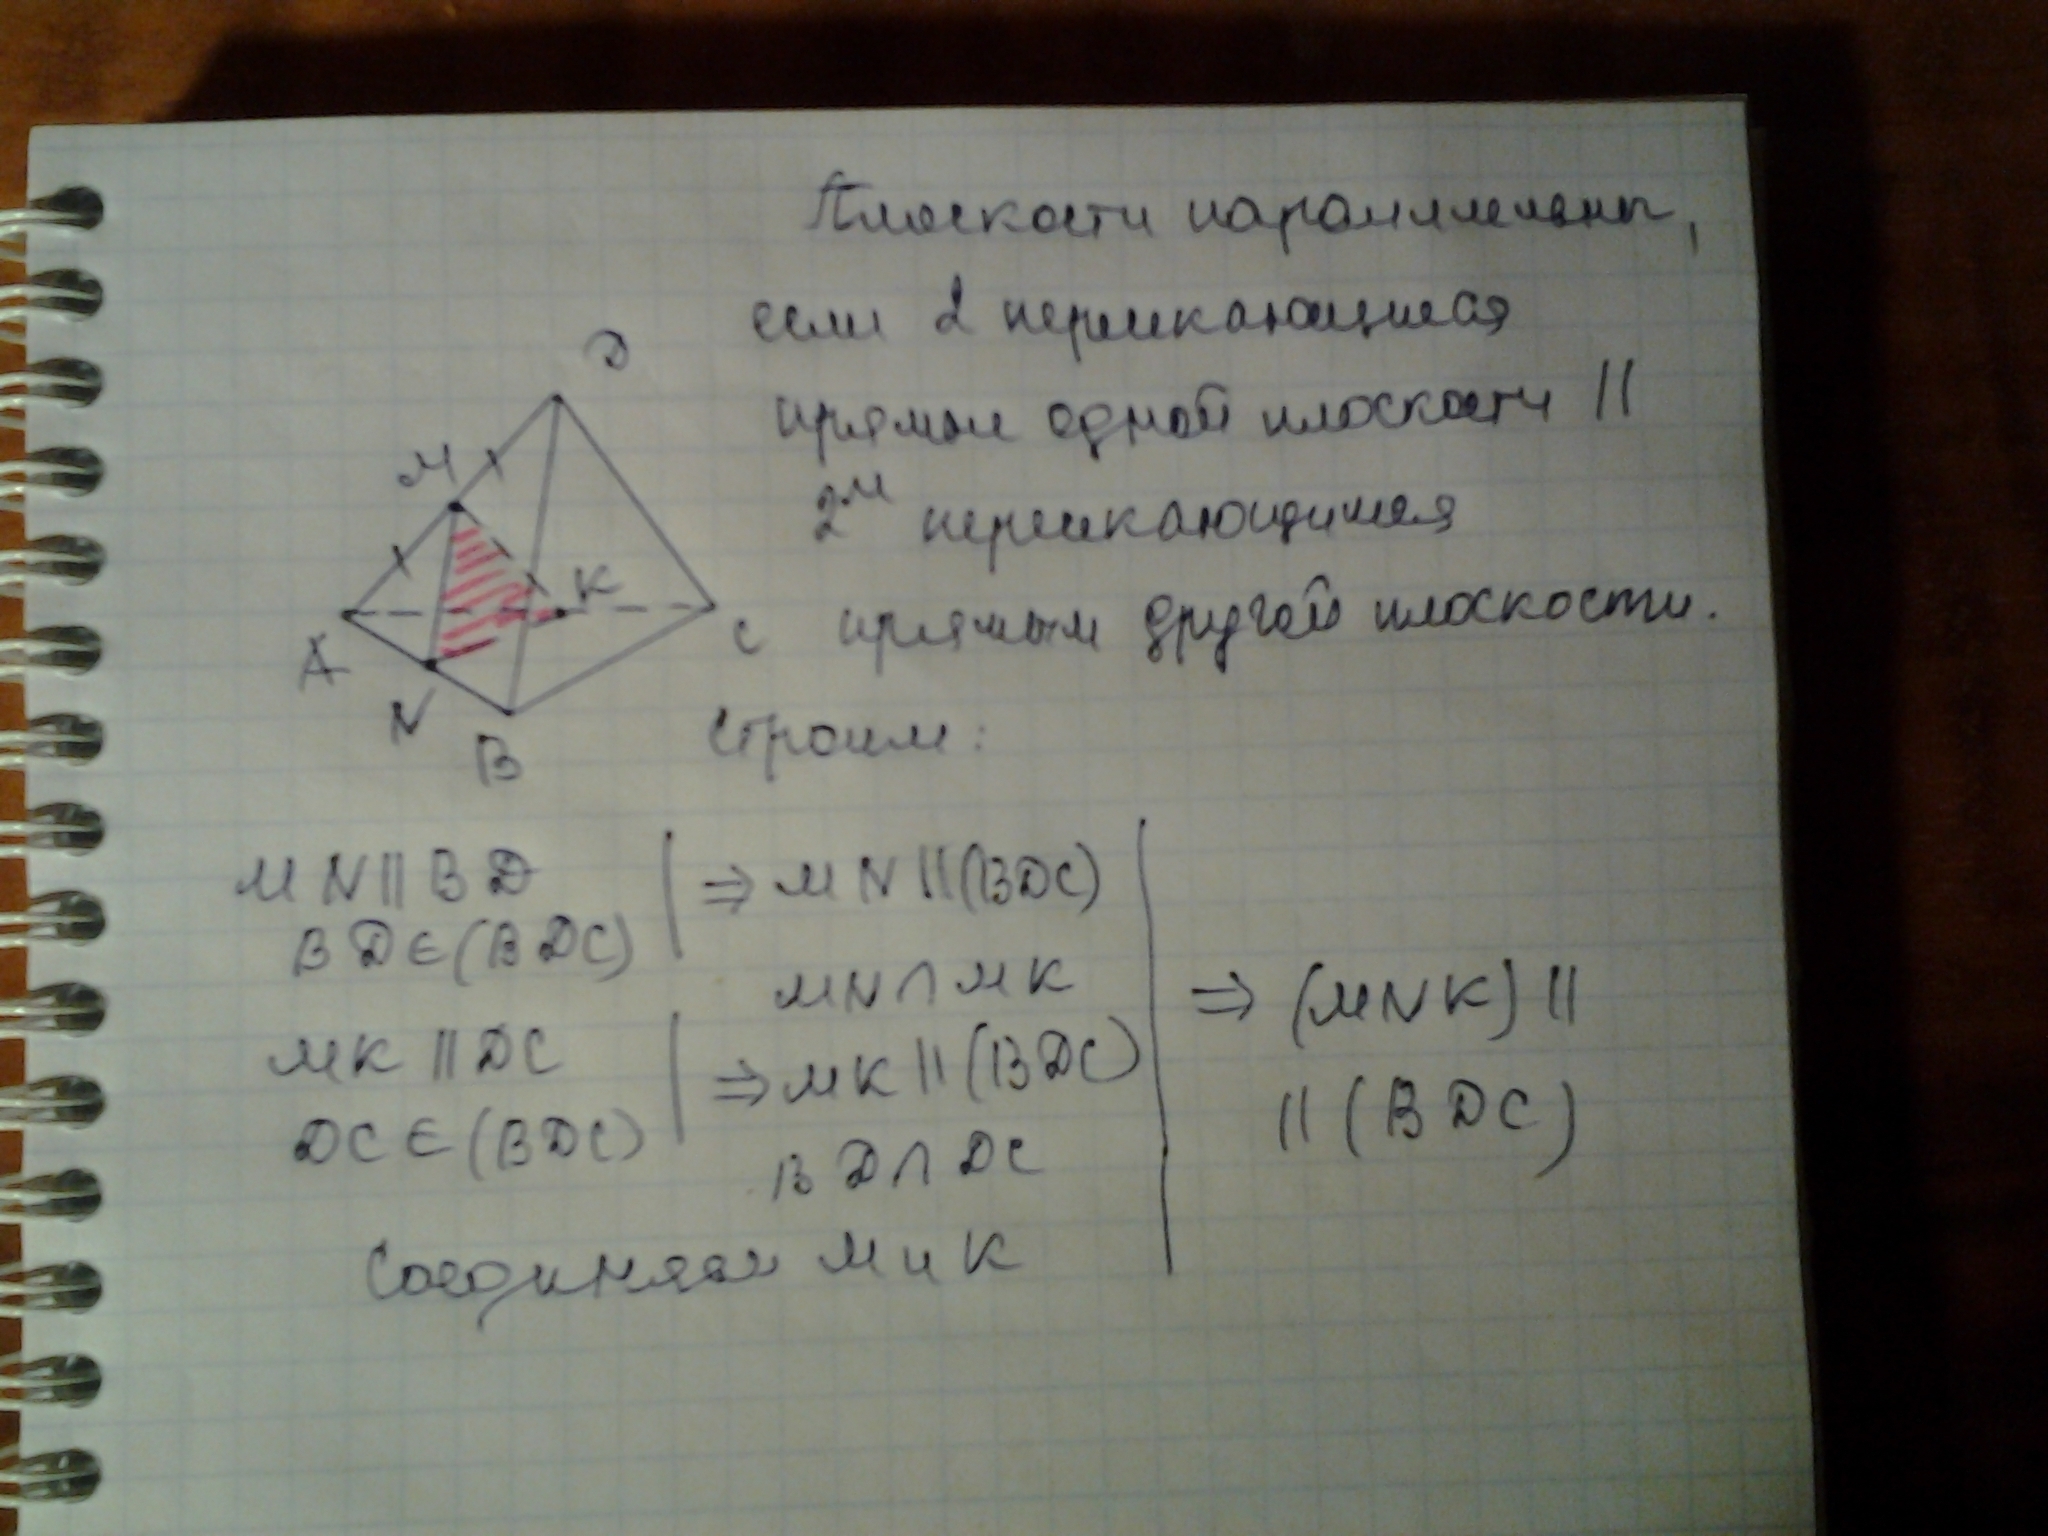 Плоскости параллельны,
если 2 пересекающиеся
прямые одной плоскости ||
2м пересекающимся
прямым другой плоскости.
D
M
K
A
C
N
B
Строим:
MN || BD
BD ∈ (BDC)
⇒ MN || (BDC)
MN ∩ MK
MK || DC
DC ∈ (BDC)
⇒ MK || (BDC)
BD ∩ DC
⇒ (MNK) ||
|| (BDC)
Соединяем M и K